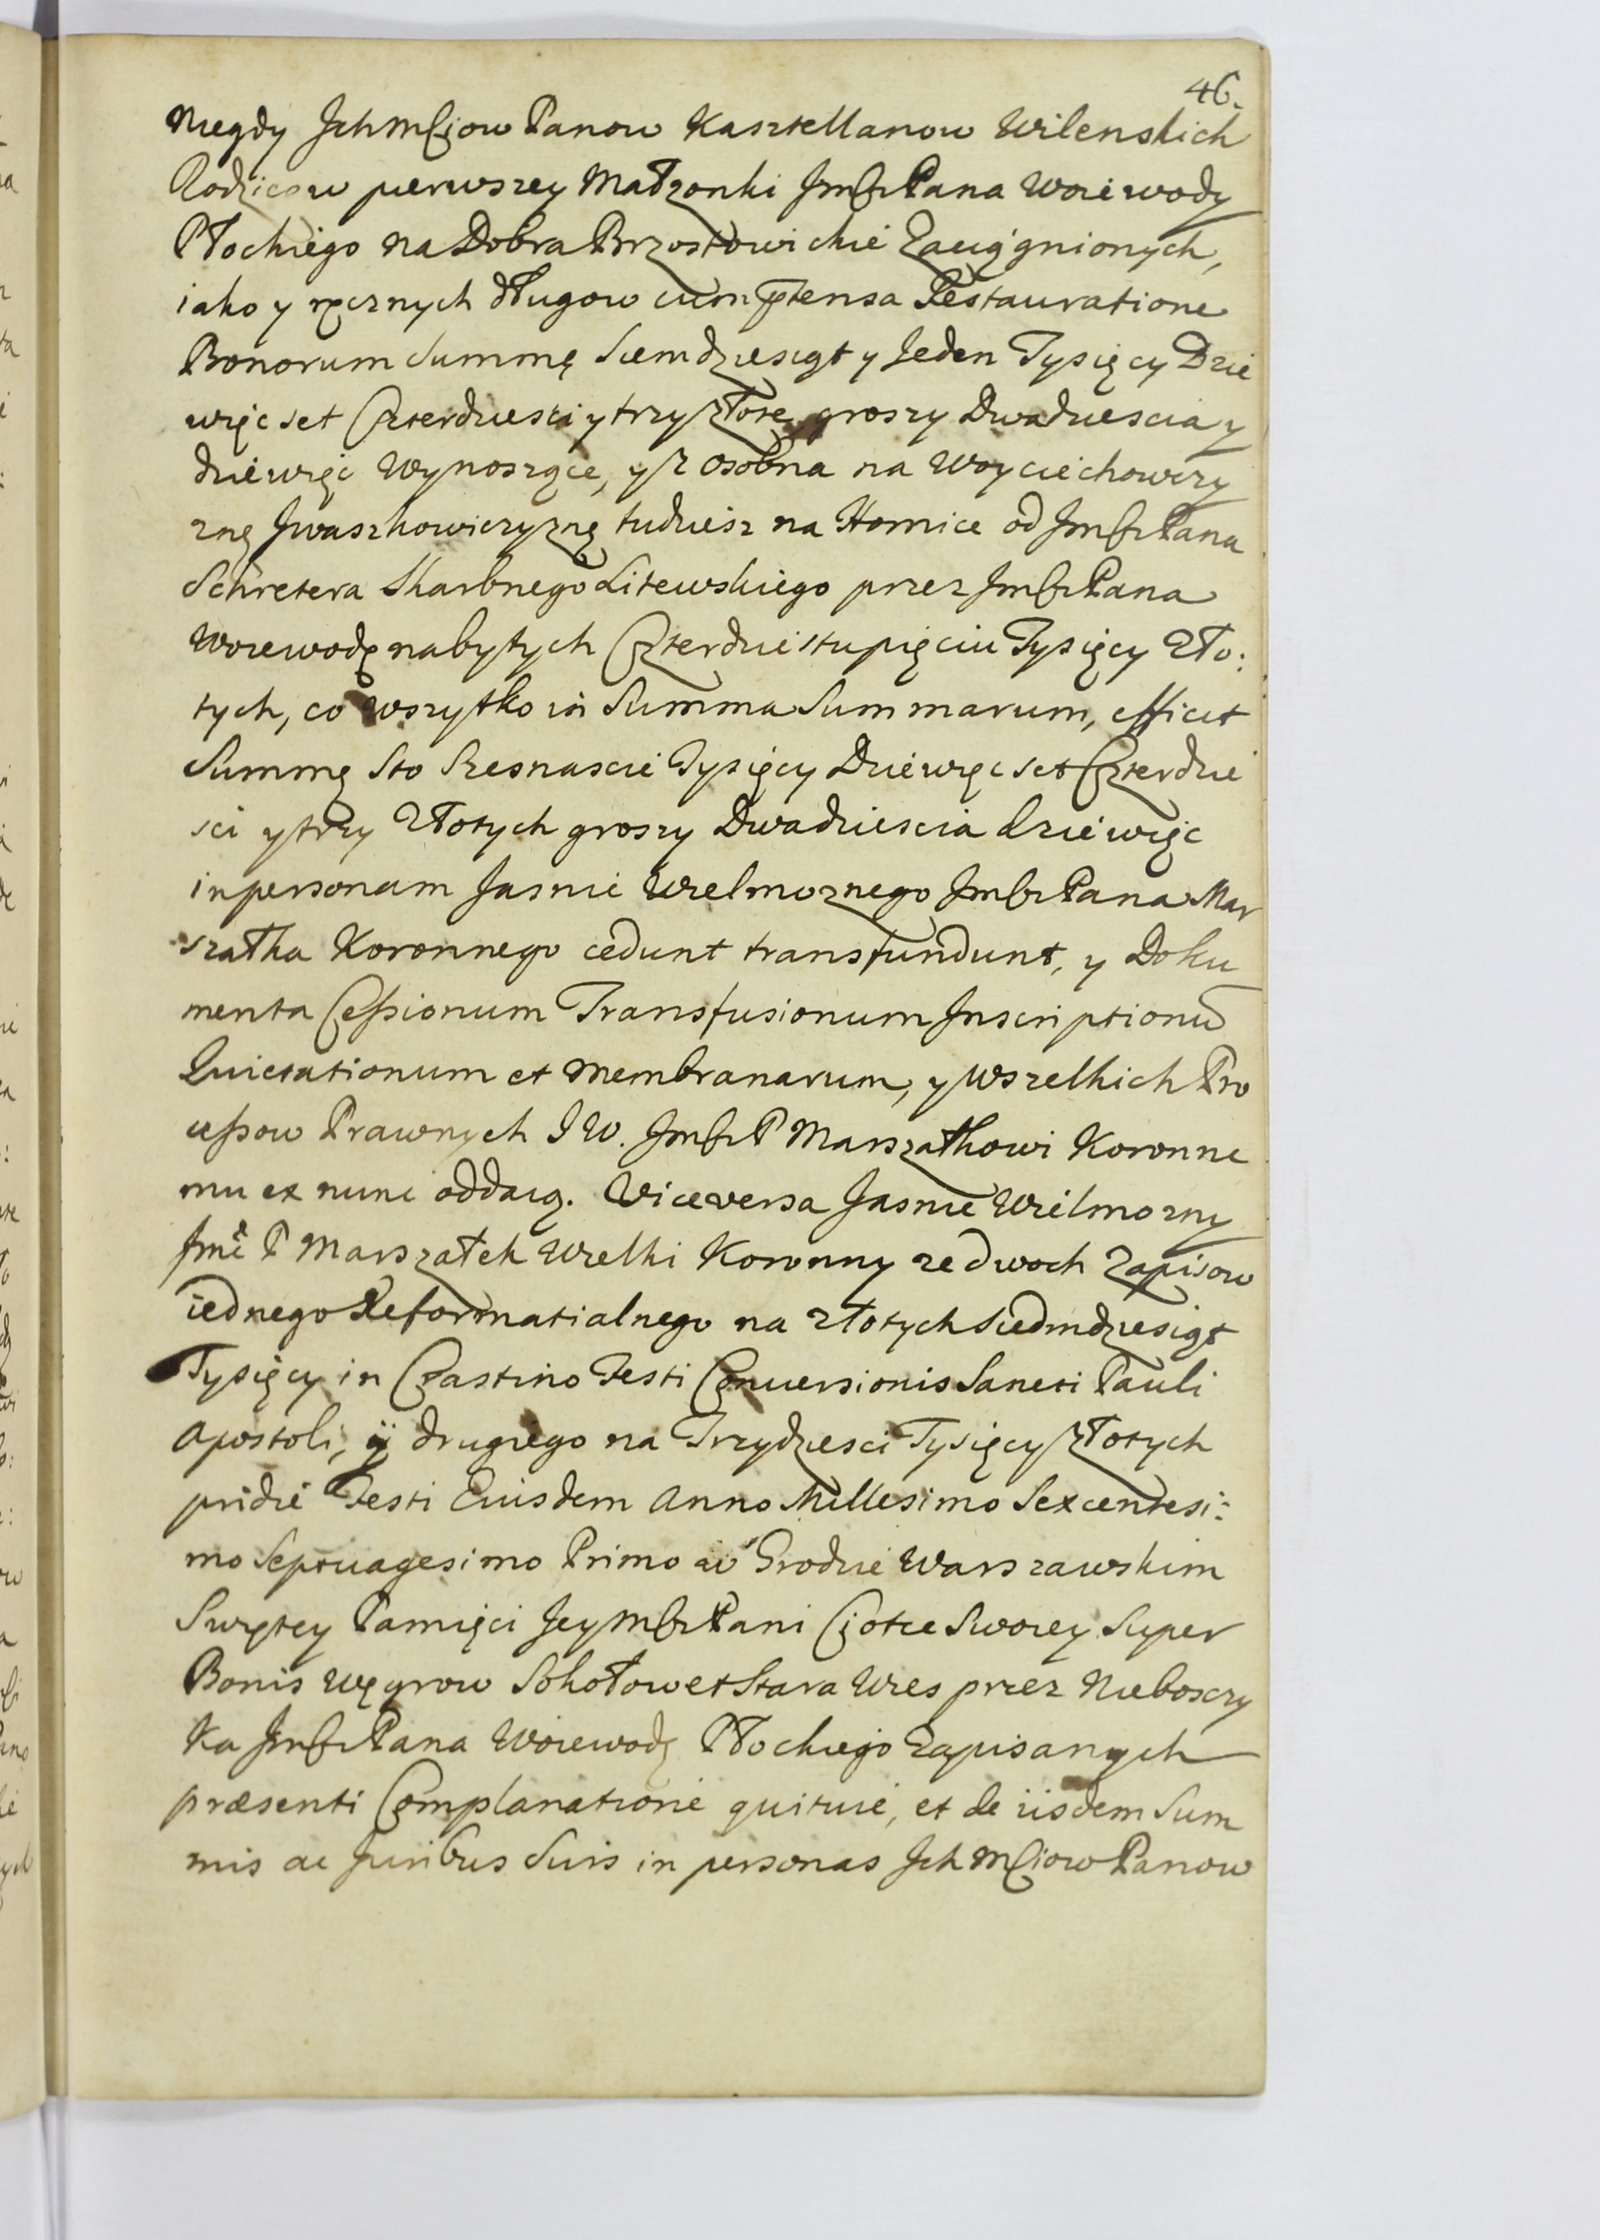 46.
Niegdy Ich Mściow Panow Kasztellanow Wilenskich
Rodzicow pierwszey Małzonki Jmści Pana Woiewody
Płockiego na Dobra Brzostowickie Zaciągnionych,
iako y ręcznych długow cum prætensa Restauratione
Bonorum Summę Siemdziesiąt y Jeden Tysięcy Dzie
więc set Czterdziesci y trzy złote groszy Dwadziescia y
dziewięc Wynoszące, y z osobna na Woyciechowczy
znę Jwaszkowiczyznę tudziesz na Hornice od Jmści Pana
Schretera Skarbnego Litewskiego przez Jmści Pana
Woiewodę nabytych Czterdziestu pięciu Tysięcy Zło:
tych, co wszytko in Summa Summarum, efficit
Summę Sto Szesnascie Tysięcy Dziewięc set Czterdzie
sci y trzy Złotych groszy Dwadziescia dziewięc
in personam Jasnie Wielmoznego Jmści Pana Mar
szałka Koronnego cedunt transfundunt, y Doku
menta Cessionum Transfusionum Inscriptionũ
Quietationum et Membranarum, y Wszelkich Pro
cessow Prawnych J W. Jmści P Marszałkowi Koronne
mu ex nunc oddaią. Viceversa Jasnie Wielmozny
Jmć P Marszałek Wielki Koronny ze dwoch Zapisow
iednego Reformatialnego na złotych Siedmdziesiąt
Tysięcy in Crastino Festi Conversionis Sancti Pauli
Apostoli, ÿ drugiego na Trzydziesci Tysięcy złotych
pridie Festi Eiusdem Anno Millesimo Sexcentesi:
mo Septuagesimo Primo w Grodzie Warszawskim
Swiętey Pamięci Jey Mści Pani Ciotce Swoiey Super
Bonis Węgrow Sokołow et Stara Wies przez Nieboszczy
ka Jmści Pana Woiewodę Płockiego Zapisanych
præsenti Complanatione quituie, et de iisdem Sum
mis ac Juribus Suis in personas Ich Mściow Panow